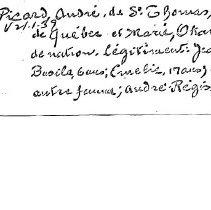 Picard, André, de St. Thomas,
V 21.1.59
de Québec et Marie, Oka
de nation. Légitiment: Jea
Basile, 6 ans; Emélie, 17 ans;
autre femme; André Régis